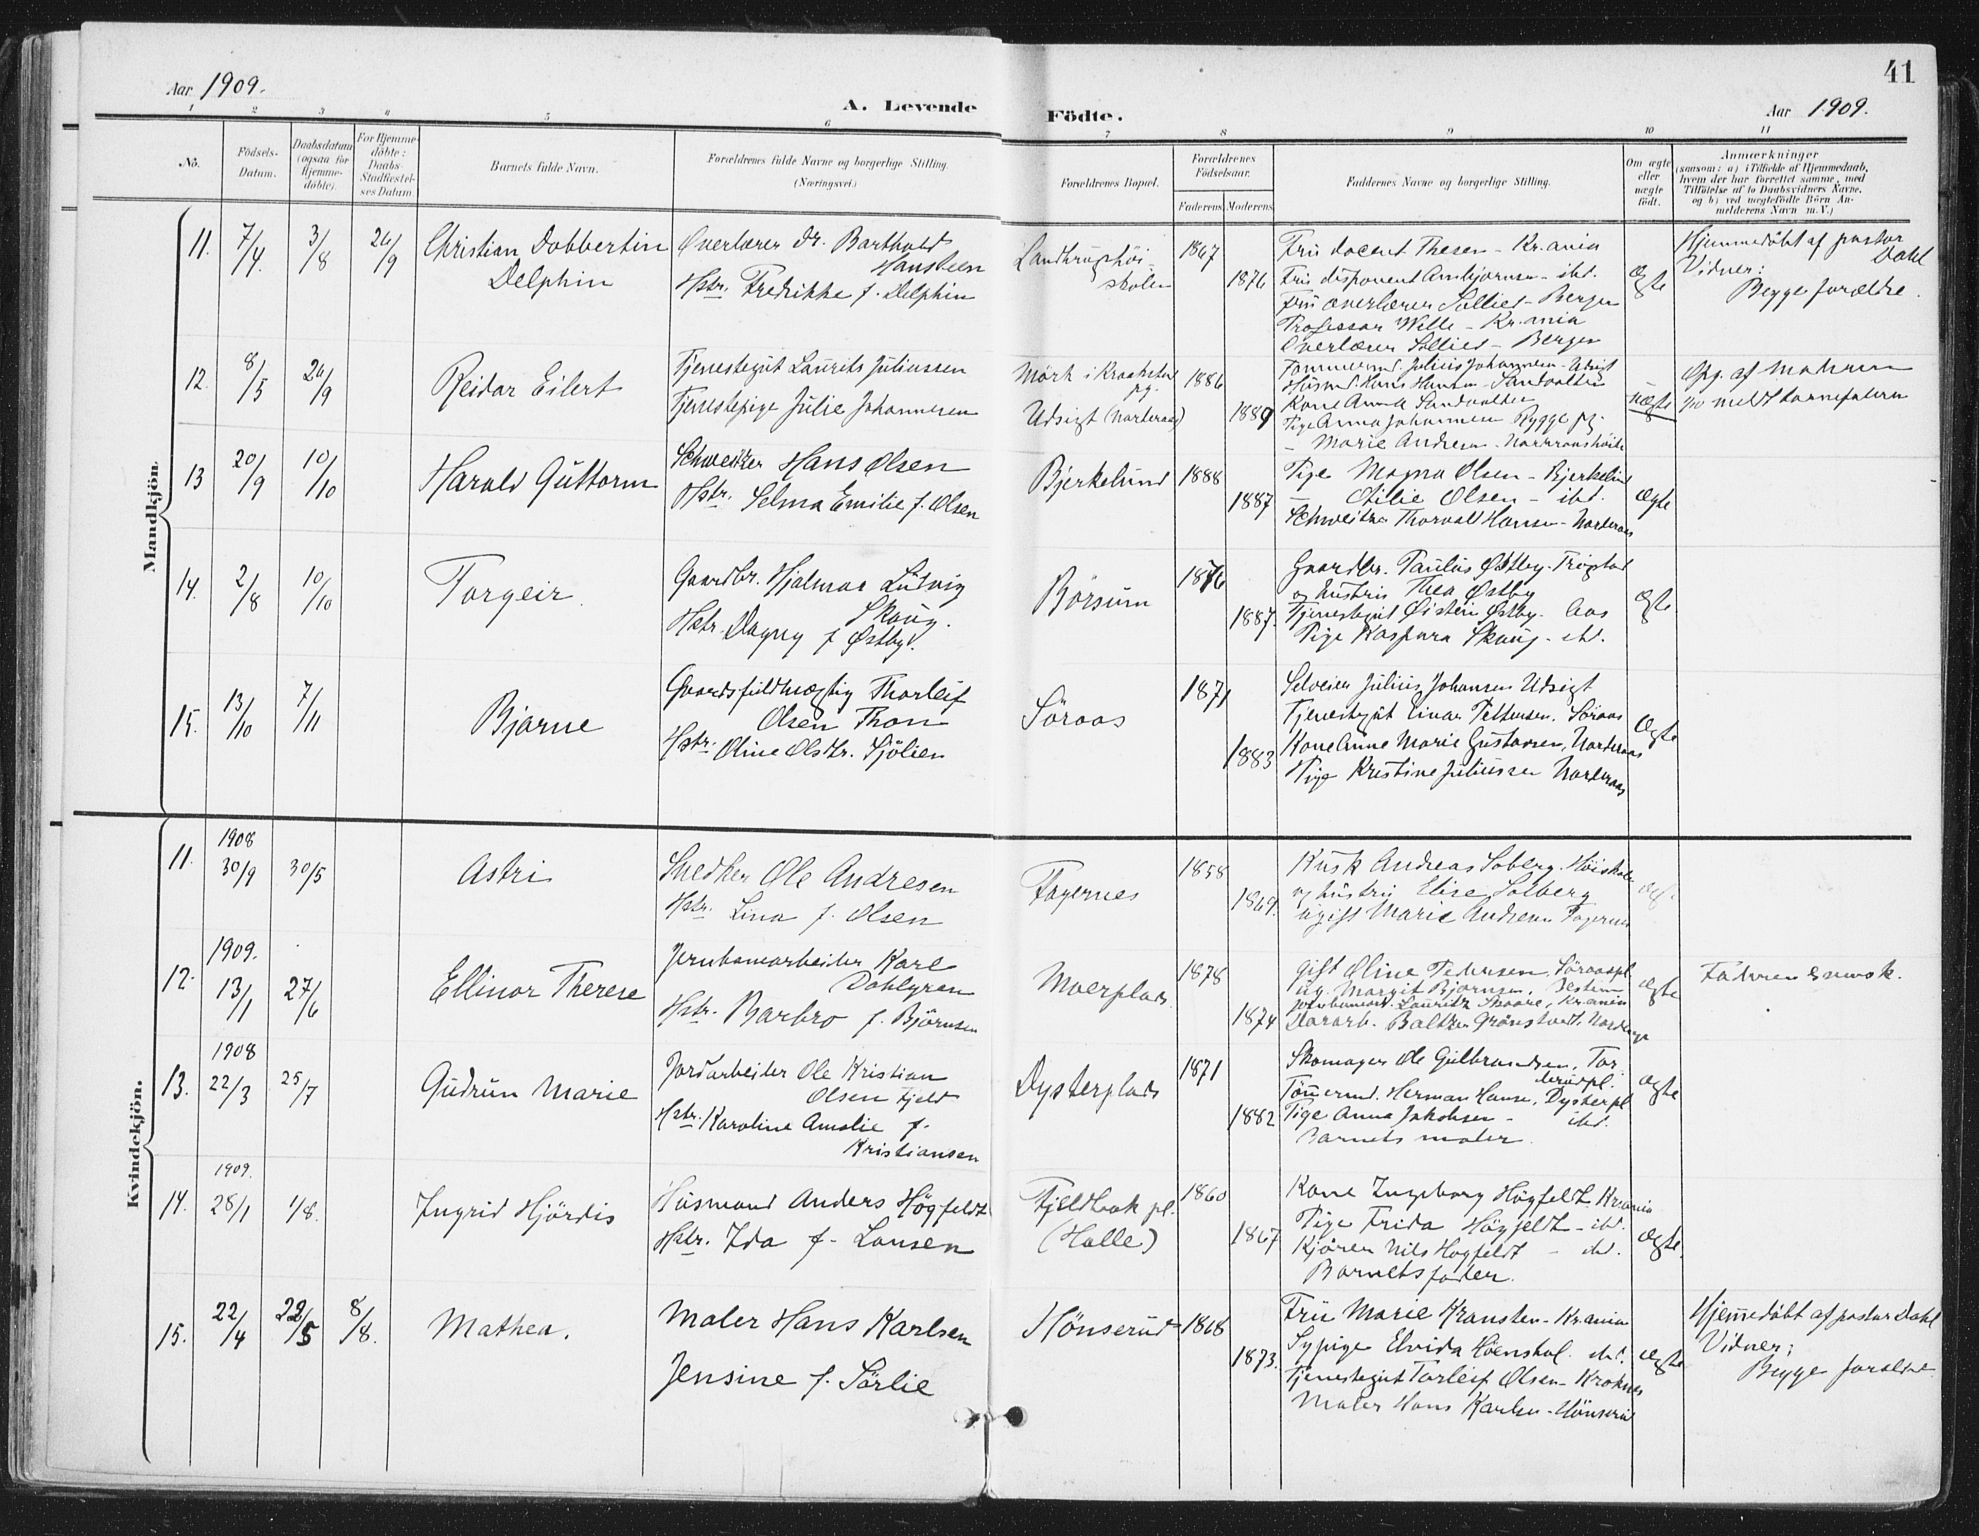 Aar 1909.
A. Levende
Födte.
Aar 1909.
41
1 2 3 4 5 6 7 8 9 10 11
Nö.
Födsels-
Datum.
Daabsdatum
(ogsaa for
Hjemme-
döbte).
For Hjemme-
döbte:
Daabs-
Stadfæstel-
ses Datum.
Barnets fulde Navn.
Forældrenes fulde Navne og borgerlige Stilling.
(Næringsvei.)
Forældrenes Bopæl.
Forældrenes
Födselsaar.
Faderens Moderens
Faddernes Navne og borgerlige Stilling.
Om ægte
eller
uægte
födt.
Anmærkninger
(saasom: a) i Tilfælde af Hjemmedaab,
hvem der har forrettet samme, med
Tilföielse af to Daabsvidners Navne,
og b) ved uægtefödte Börn An-
melderens Navn m. V.)
Mandkjön.
11. 7/4. 3/8 26/9
Christian Dobbertin
Delphin
Overlærer Dr. Barthold
Hansteen
Hstr. Fredrikke f. Delphin
Landbrugshöi-
skolen
1867
1876
Fru docent Thesen - Kr.ania
Fru disponent - ibd.
Fru overlærer Sollied - Bergen
Professor Wille - Kr.ania
Overlærer Sollied - Bergen
Ægte
Hjemmedöbt af pastor
Dahl
Vidner:
Begge forældre.
12. 8/5 26/9
Reidar Eilert
Tjenestegut Laurits Juliussen
Tjenestepige Julie Johannesen
Mörk i Kraakstad
pg.
Udsigt (Norderaas)
1886
1889
Tömmermd. Julius Johannesen - Udsigt
Husmd. Hans Hansen - Sandvolden
Kone Anna Sandvolden
Pige Anna Johannesen Rygge pg.
- Marie Andresen -
uægte
Opg. af Moderen
meldt barnefaderen
13 20/9 10/10
Harald Guttorm
Schweitzer Hans Olsen
Hstr. Selma Emilie f. Olsen
Bjerkelund
1888
1887
Pige Magna Olsen - Bjerkelund
- Otilie Olsen - ibd.
Schweitzer Thorvald Hansen - Norderaas
Ægte
14. 2/8 10/10
Torgeir
Gaardbr. Hjalmar Ludvig
Skaug.
Hstr. Dagny f. Östby.
Börsum
1876
1887.
Gaardbr. Paulus Östby - Trögstad
og hustru Thea Östby
Tjenestegut Östein Östby - Aas
Pige Kaspara Skaug - ibd.
Ægte
15. 13/10 7/11
Bjarne
Gaardsfuldmægtig Thorleif
Olsen Thon
Hstr. Oline Olsdtr. Sjölien
Söraas
1871
1883
Selveier Julius Johansen Udsigt
Tjenestegut Einar Pettersen. Söraas
Kone Anne Marie Gustavsen, Norderaas
Pige Kristine Juliussen Norderaas
Ægte
Kvindekjön.
11. 1908
30/9 30/5
Astri
Snedker Ole Andresen
Hstr. Lina f. Olsen
Fagernes
1858
1869.
Kusk Andreas Solberg. Höiskolen
og hustru Elise Solberg
ugift Marie Andresen Fagernes
12. 1909.
13/1 27/6
Ellinor Therese
Jernbanearbeider Karl
Dahlgren
Hstr. Barbro f. Björnsen
Moerplads
1878
1874
Gift Oline Pedersen, Söraaspl.
Ug. Margit Bjornsen,
Jernbanearb. Lauritz Skaare, Kr.ania
Baltzer Grönstvedt, Nordbye
Ægte
Faderen svensk.
13. 1908
22/3 25/7
Gudrun Marie
Jordarbeider Ole Kristian
Olsen Fjeld
Hstr. Karoline Amalie f.
Kristiansen
Dysterplads
1871
1882
Skomager Ole Gulbrandsen, Tor-
derudpl.
Tömermd. Herman Hansen, Dysterpl.
Pige Anna Jakobsen - ibd.
Barnets moder.
Ægte
14. 1909.
28/1 1/8.
Ingrid Hjördis
Husmand Anders Högfeldt
Hstr. Ida f. Larsen
Fjeldbaak pl.
(Holle)
1860
1867
Kone Ingeborg Högfeldt Kr.ania
Pige Frida Högfeldt - ibd.
Kjörer Nils Högfeldt - ibd.
Barnets fader.
Ægte.
15. 22/4 22/5 8/8.
Mathea.
Maler Hans Karlsen
Jensine f. Sörlie
Hönserud
1868
1873.
Fru Marie Kransten - Kr.ania
Sypige Elvida - ibd.
Tjenestegut Torleif Olsen -
Maler Hans Karlsen - Hönserud
Ægte
Hjemmedöbt af pastor Dahl
Vidner:
Begge forældre